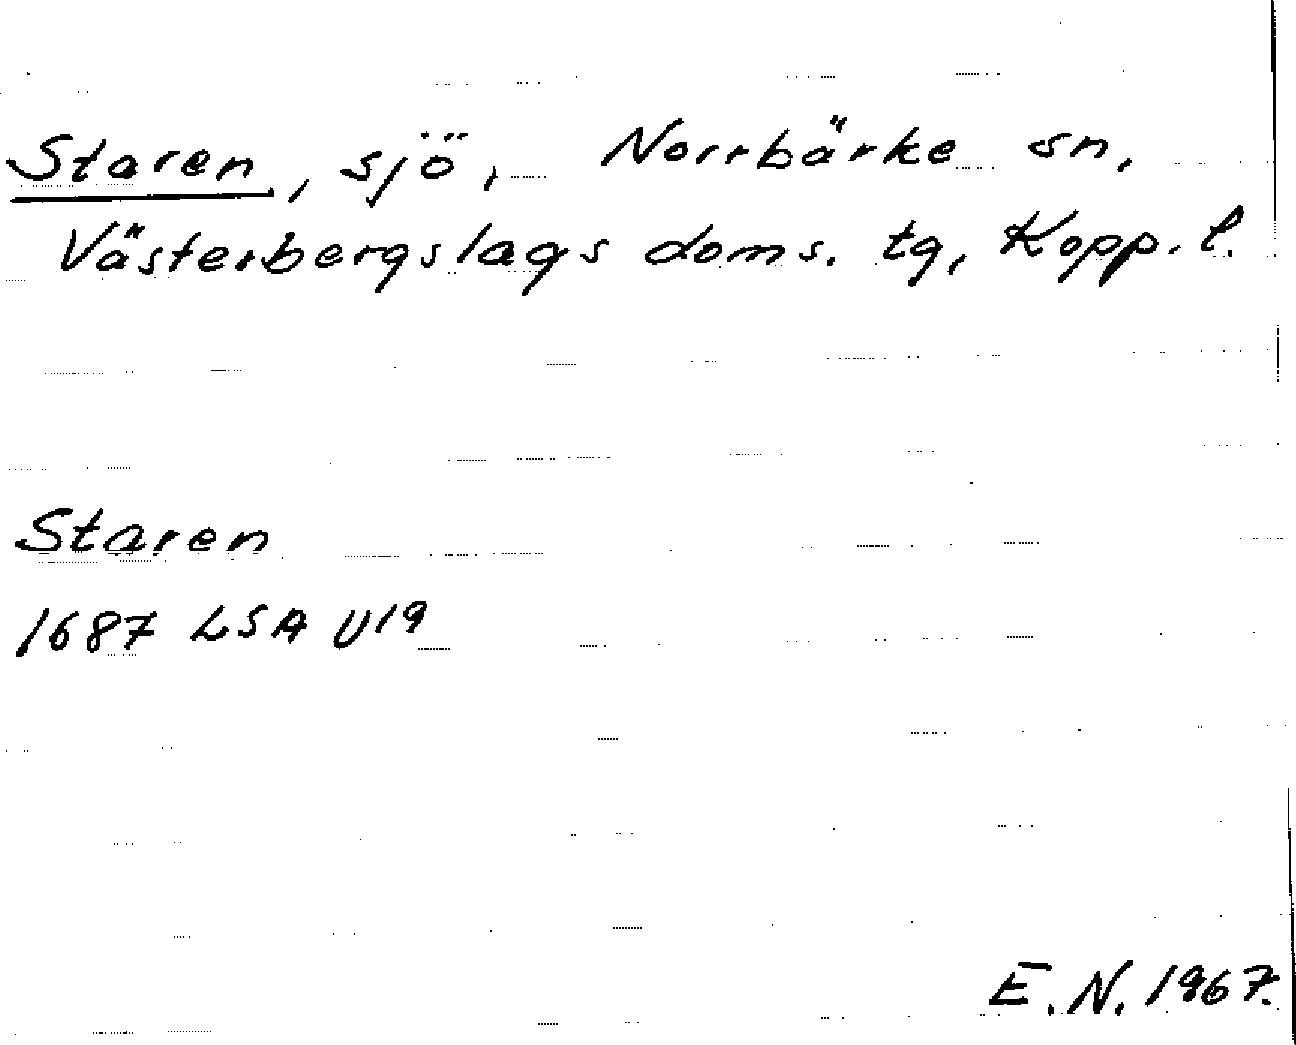 Staren, sjö, Norrbärke sn,
Västerbergslags doms. tg, Kopp. l.
Staren
1687 LSA U19
E.N. 1967.